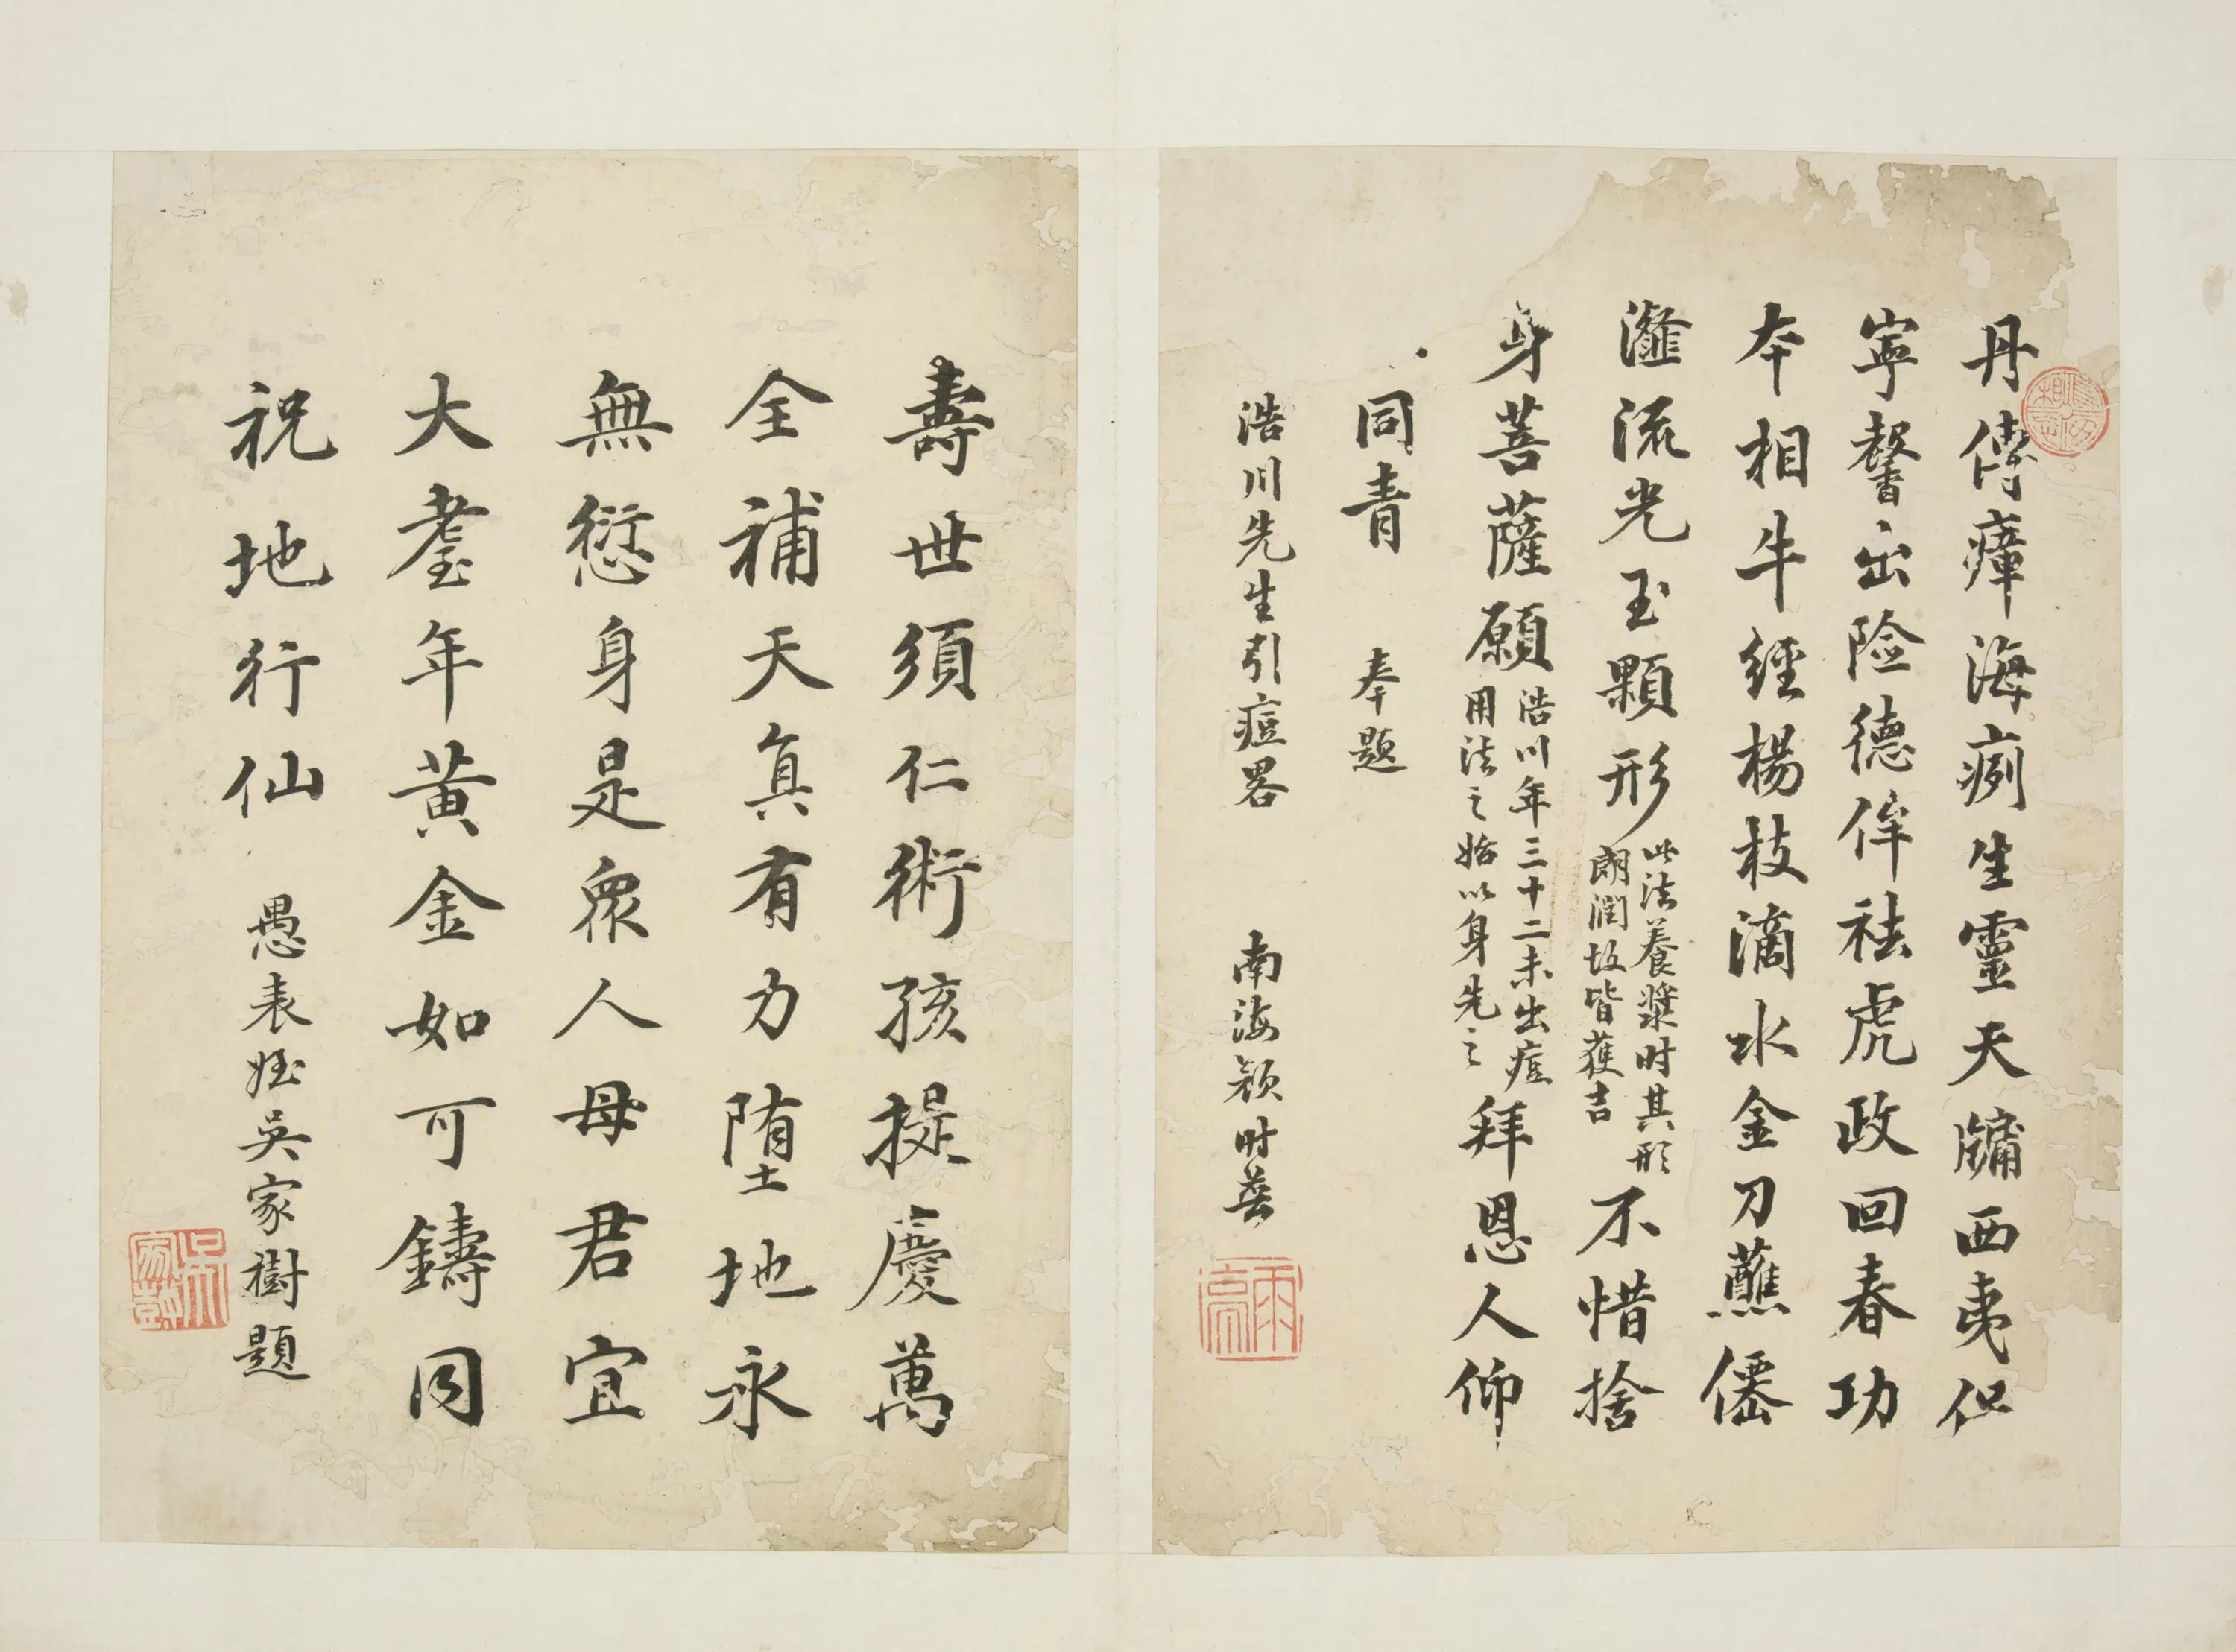 丹傳瘴海痾生靈天牖西夷但
寧馨出险德侔祛虎政回春功
本相牛經楊枝滴水金刀蘸僊
瀣流光玉顆形此法養漿时其形
朗潤故皆蒦吉不惜捨
身菩薩願浩川年三十二未出痘
用法之始以身先之拜恩人仰
同青 奉題
浩川先生引痘畧 南海顏时普
雨亭
壽世須仁術孩提慶萬
全補天真有力堕地永
無愆身是眾人母君宜
大耋年黃金如可鑄同
祝地行仙 愚表姪吳家樹題
吳家樹